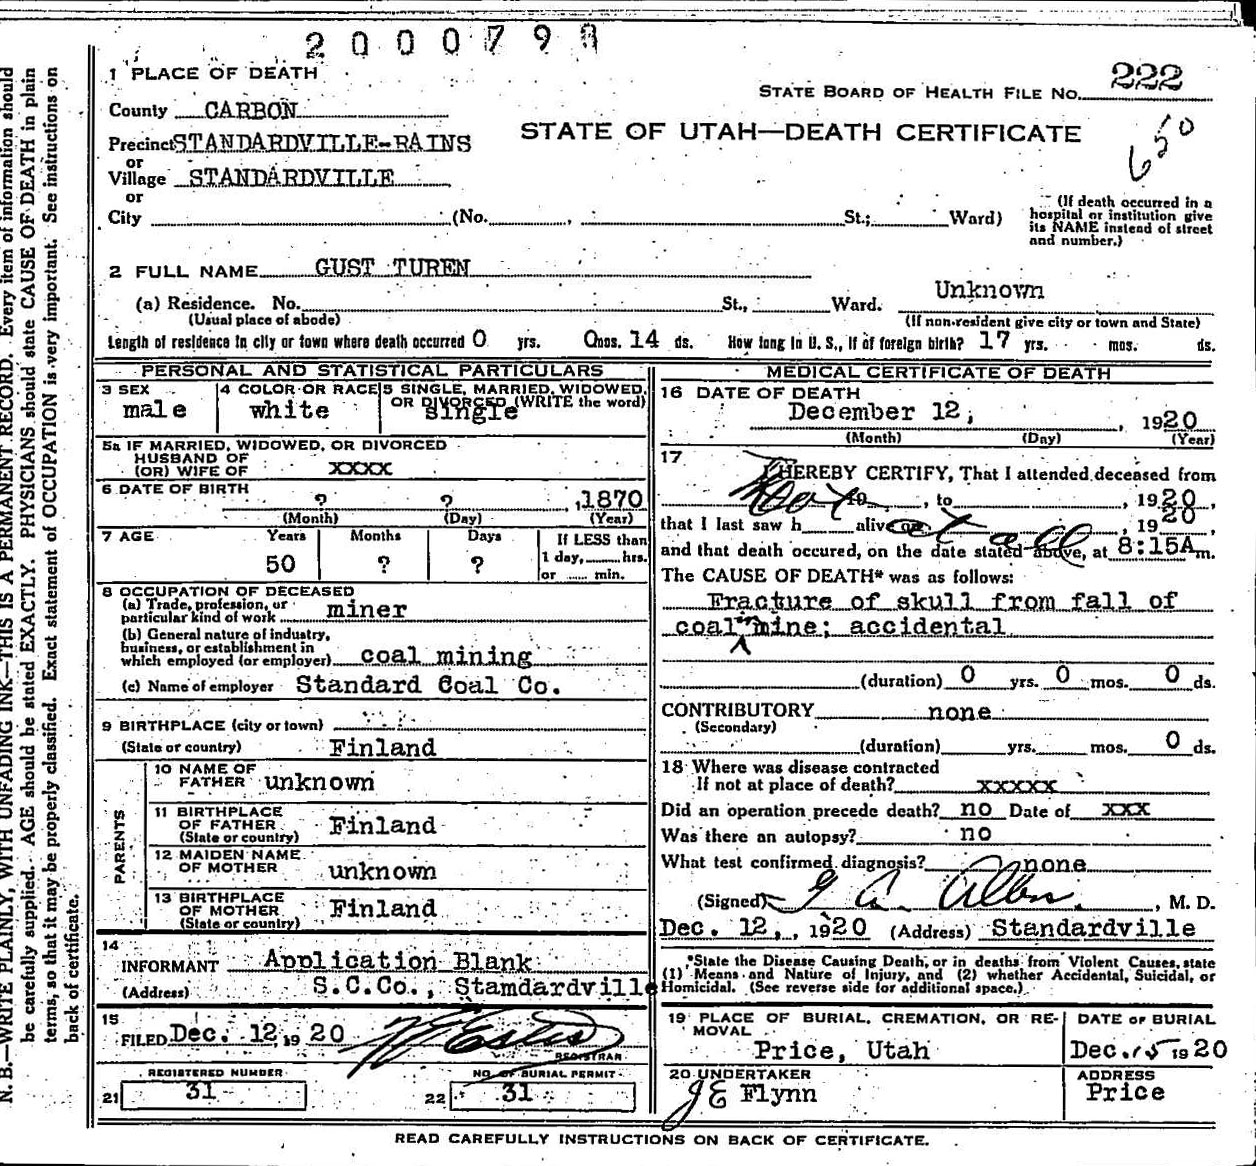 2000798
1 PLACE OF DEATH
STATE BOARD OF HEALTH FILE NO. 222
County CARBON
STATE OF UTAH—DEATH CERTIFICATE
650
Precinct STANDARDVILLE-RAINS
or
Village STANDARDVILLE
or
City (No. , St.; Ward)
(If death occurred in a
hospital or institution give
its NAME instead of street
and number.)
2 FULL NAME GUST TUREN
(a) Residence. No. St., Ward. Unknown
(Usual place of abode) (If non-resident give city or town and State)
Length of residence in city or town where death occurred 0 yrs. 0 mos. 14 ds. How long in U. S., if of foreign birth? 17 yrs. mos. ds.
PERSONAL AND STATISTICAL PARTICULARS
3 SEX male
4 COLOR OR RACE white
5 SINGLE, MARRIED, WIDOWED,
OR DIVORCED (WRITE the word)
single
5a IF MARRIED, WIDOWED, OR DIVORCED
HUSBAND OF
(OR) WIFE OF xxxx
6 DATE OF BIRTH
? ? , 1870
(Month) (Day) (Year)
7 AGE Years Months Days If LESS than
1 day, hrs.
or min.
50 ? ?
8 OCCUPATION OF DECEASED
(a) Trade, profession, or
particular kind of work miner
(b) General nature of industry,
business, or establishment in
which employed (or employer) coal mining
(c) Name of employer Standard Coal Co.
9 BIRTHPLACE (city or town)
(State or country) Finland
PARENTS
10 NAME OF
FATHER unknown
11 BIRTHPLACE
OF FATHER Finland
(State or country)
12 MAIDEN NAME
OF MOTHER unknown
13 BIRTHPLACE
OF MOTHER Finland
(State or country)
14
INFORMANT Application Blank
(Address) S.C.Co., Stamdardville
15
FILED Dec. 12, 19 20
REGISTRAR
REGISTERED NUMBER NO. OF BURIAL PERMIT
21 31 22 31
MEDICAL CERTIFICATE OF DEATH
16 DATE OF DEATH
December 12, , 1920
(Month) (Day) (Year)
17
I HEREBY CERTIFY, That I attended deceased from
not 19 , to , 1920,
that I last saw h alive on at all , 1920
and that death occured, on the date stated above, at 8:15A m.
The CAUSE OF DEATH* was as follows:
Fracture of skull from fall of
coal in mine; accidental
(duration) 0 yrs. 0 mos. 0 ds.
CONTRIBUTORY none
(Secondary)
(duration) yrs. mos. 0 ds.
18 Where was disease contracted
If not at place of death? xxxxx
Did an operation precede death? no Date of xxx
Was there an autopsy? no
What test confirmed diagnosis? none
(Signed) , M. D.
Dec. 12, , 1920 (Address) Standardville
*State the Disease Causing Death, or in deaths from Violent Causes, state
(1) Means and Nature of Injury, and (2) whether Accidental, Suicidal, or
Homicidal. (See reverse side for additional space.)
19 PLACE OF BURIAL, CREMATION, OR RE-
MOVAL
Price, Utah
DATE OF BURIAL
Dec. 15 1920
20 UNDERTAKER
J E Flynn
ADDRESS
Price
READ CAREFULLY INSTRUCTIONS ON BACK OF CERTIFICATE.
N. B.—WRITE PLAINLY, WITH UNFADING INK—THIS IS A PERMANENT RECORD. Every item of information should
be carefully supplied. AGE should be stated EXACTLY. PHYSICIANS should state CAUSE OF DEATH in plain
terms, so that it may be properly classified. Exact statement of OCCUPATION is very important. See instructions on
back of certificate.